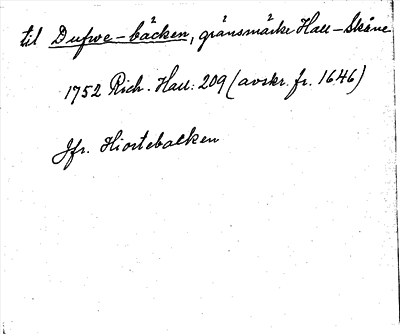 til Dufwe-bäcken, gränsmärke Hall-Skåne
1752 Rich. Hall: 209 (avskr. fr. 1646)
Jfr. Hiortebalken